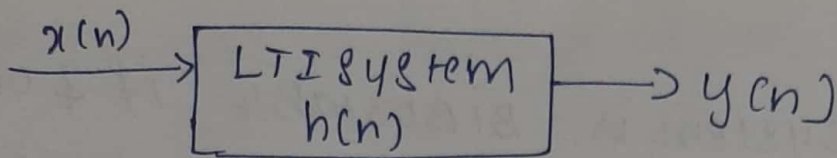 x(n)
LTI System
h(n)
y(n)